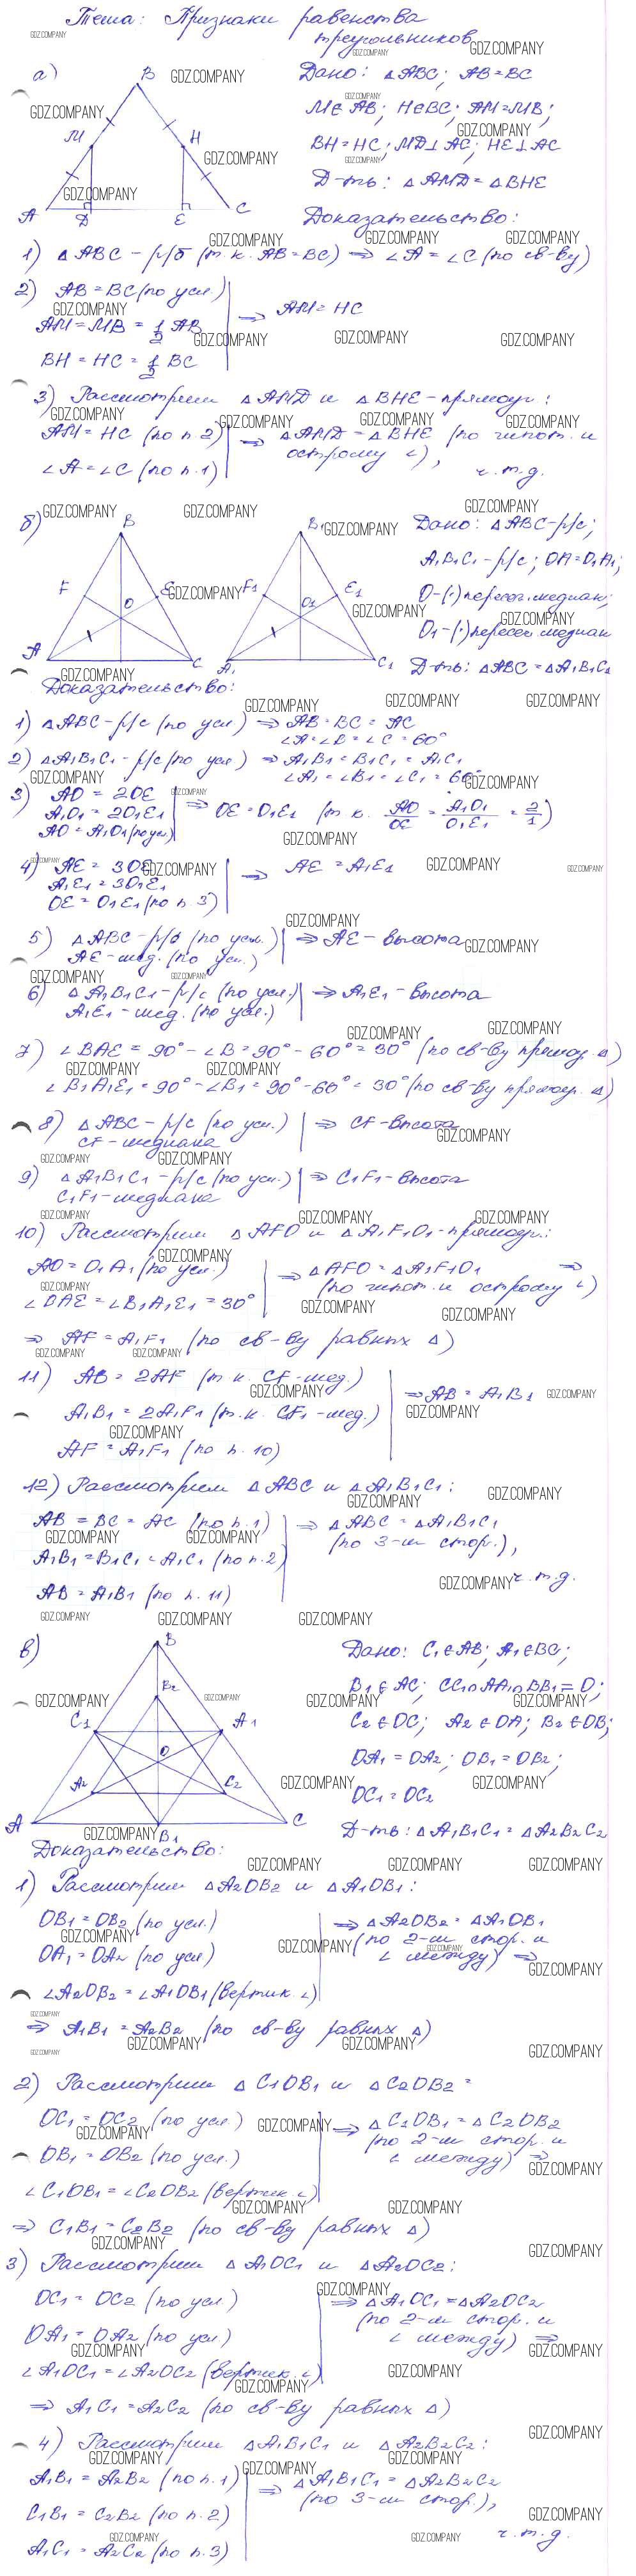 Тема: Признаки равенства
треугольников
а)
Дано: △ABC; AB=BC
M∈AB; H∈BC; AM=MB;
BH=HC; MD⊥AC; HE⊥AC
Д-ть: △AMD=△BHE
Доказательство:
1) △ABC – р/б (т.к. AB=BC) ⇒ ∠A=∠C (по св-ву)
2) AB=BC (по усл)
AM=MB=1/2 AB
BH=HC=1/2 BC
⇒ AM=HC
3) Рассмотрим △AMD и △BHE – прямоуг:
AM=HC (по п.2)
∠A=∠C (по п.1)
⇒ △AMD=△BHE (по гипот. и
острому ∠),
ч.т.д.
б)
Дано: △ABC–р/с;
A₁B₁C₁–р/с; OA=O₁A₁;
O–(·) пересеч. медиан;
O₁–(·) пересеч. медиан
Д-ть: △ABC=△A₁B₁C₁
Доказательство:
1) △ABC–р/с (по усл) ⇒ AB=BC=AC
∠A=∠B=∠C=60°
2) △A₁B₁C₁–р/с (по усл) ⇒ A₁B₁=B₁C₁=A₁C₁
∠A₁=∠B₁=∠C₁=60°
3) AO=2OE
A₁O₁=2O₁E₁
AO=A₁O₁ (по усл)
⇒ OE=O₁E₁ (т.к. AO/OE=A₁O₁/O₁E₁=2/1)
4) AE=3OE
A₁E₁=3O₁E₁
OE=O₁E₁ (по п.3)
⇒ AE=A₁E₁
5) △ABC–р/б (по усл.)
AE–мед. (по усл.)
⇒ AE–высота
6) △A₁B₁C₁–р/с (по усл.)
A₁E₁–мед. (по усл.)
⇒ A₁E₁–высота
7) ∠BAE=90°–∠B=90°–60°=30° (по св-ву прямоуг. △)
∠B₁A₁E₁=90°–∠B₁=90°–60°=30° (по св-ву прямоуг. △)
8) △ABC–р/с (по усл.)
CF–медиана
⇒ CF–высота
9) △A₁B₁C₁–р/с (по усл.)
C₁F₁–медиана
⇒ C₁F₁–высота
10) Рассмотрим △AFO и △A₁F₁O₁–прямоуг.:
AO=O₁A₁ (по усл.)
∠BAE=∠B₁A₁E₁=30°
⇒ △AFO=△A₁F₁O₁ ⇒
(по гипот. и острому ∠)
⇒ AF=A₁F₁ (по св-ву равных △)
11) AB=2AF (т.к. CF–мед.)
A₁B₁=2A₁F₁ (т.к. CF₁–мед.)
AF=A₁F₁ (по п.10)
⇒ AB=A₁B₁
12) Рассмотрим △ABC и △A₁B₁C₁:
AB=BC=AC (по п.1)
A₁B₁=B₁C₁=A₁C₁ (по п.2)
AB=A₁B₁ (по п.11)
⇒ △ABC=△A₁B₁C₁
(по 3-м стор.),
ч.т.д.
в)
Дано: C₁∈AB; A₁∈BC;
B₁∈AC; CC₁∩AA₁∩BB₁=O;
C₂∈OC; A₂∈OA; B₂∈OB;
OA₁=OA₂; OB₁=OB₂;
OC₁=OC₂
Д-ть: △A₁B₁C₁=△A₂B₂C₂
Доказательство:
1) Рассмотрим △A₂OB₂ и △A₁OB₁:
OB₁=OB₂ (по усл.)
OA₁=OA₂ (по усл)
∠A₂OB₂=∠A₁OB₁ (вертик. ∠)
⇒ △A₂OB₂=△A₁OB₁
(по 2-м стор. и
∠ между) ⇒
⇒ A₁B₁=A₂B₂ (по св-ву равных △)
2) Рассмотрим △C₁OB₁ и △C₂OB₂:
OC₁=OC₂ (по усл)
OB₁=OB₂ (по усл.)
∠C₁OB₁=∠C₂OB₂ (вертик. ∠)
⇒ △C₁OB₁=△C₂OB₂
(по 2-м стор. и
∠ между) ⇒
⇒ C₁B₁=C₂B₂ (по св-ву равных △)
3) Рассмотрим △A₁OC₁ и △A₂OC₂:
OC₁=OC₂ (по усл)
OA₁=OA₂ (по усл)
∠A₁OC₁=∠A₂OC₂ (вертик. ∠)
⇒ △A₁OC₁=△A₂OC₂
(по 2-м стор. и
∠ между) ⇒
⇒ A₁C₁=A₂C₂ (по св-ву равных △)
4) Рассмотрим △A₁B₁C₁ и △A₂B₂C₂:
A₁B₁=A₂B₂ (по п.1)
C₁B₁=C₂B₂ (по п.2)
A₁C₁=A₂C₂ (по п.3)
⇒ △A₁B₁C₁=△A₂B₂C₂
(по 3-м стор.),
ч.т.д.
GDZ.COMPANY